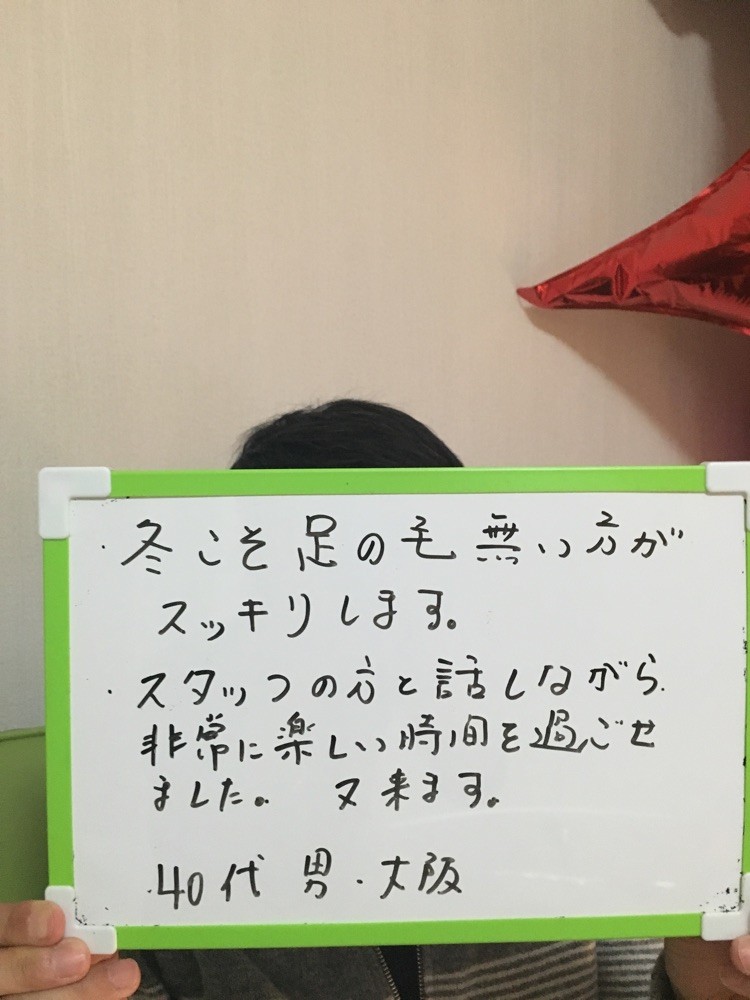 ・冬こそ足の毛無い方が
スッキリします。
・スタッフの方と話しながら
非常に楽しい時間を過ごせ
ました。 又来ます。
40代 男・大阪